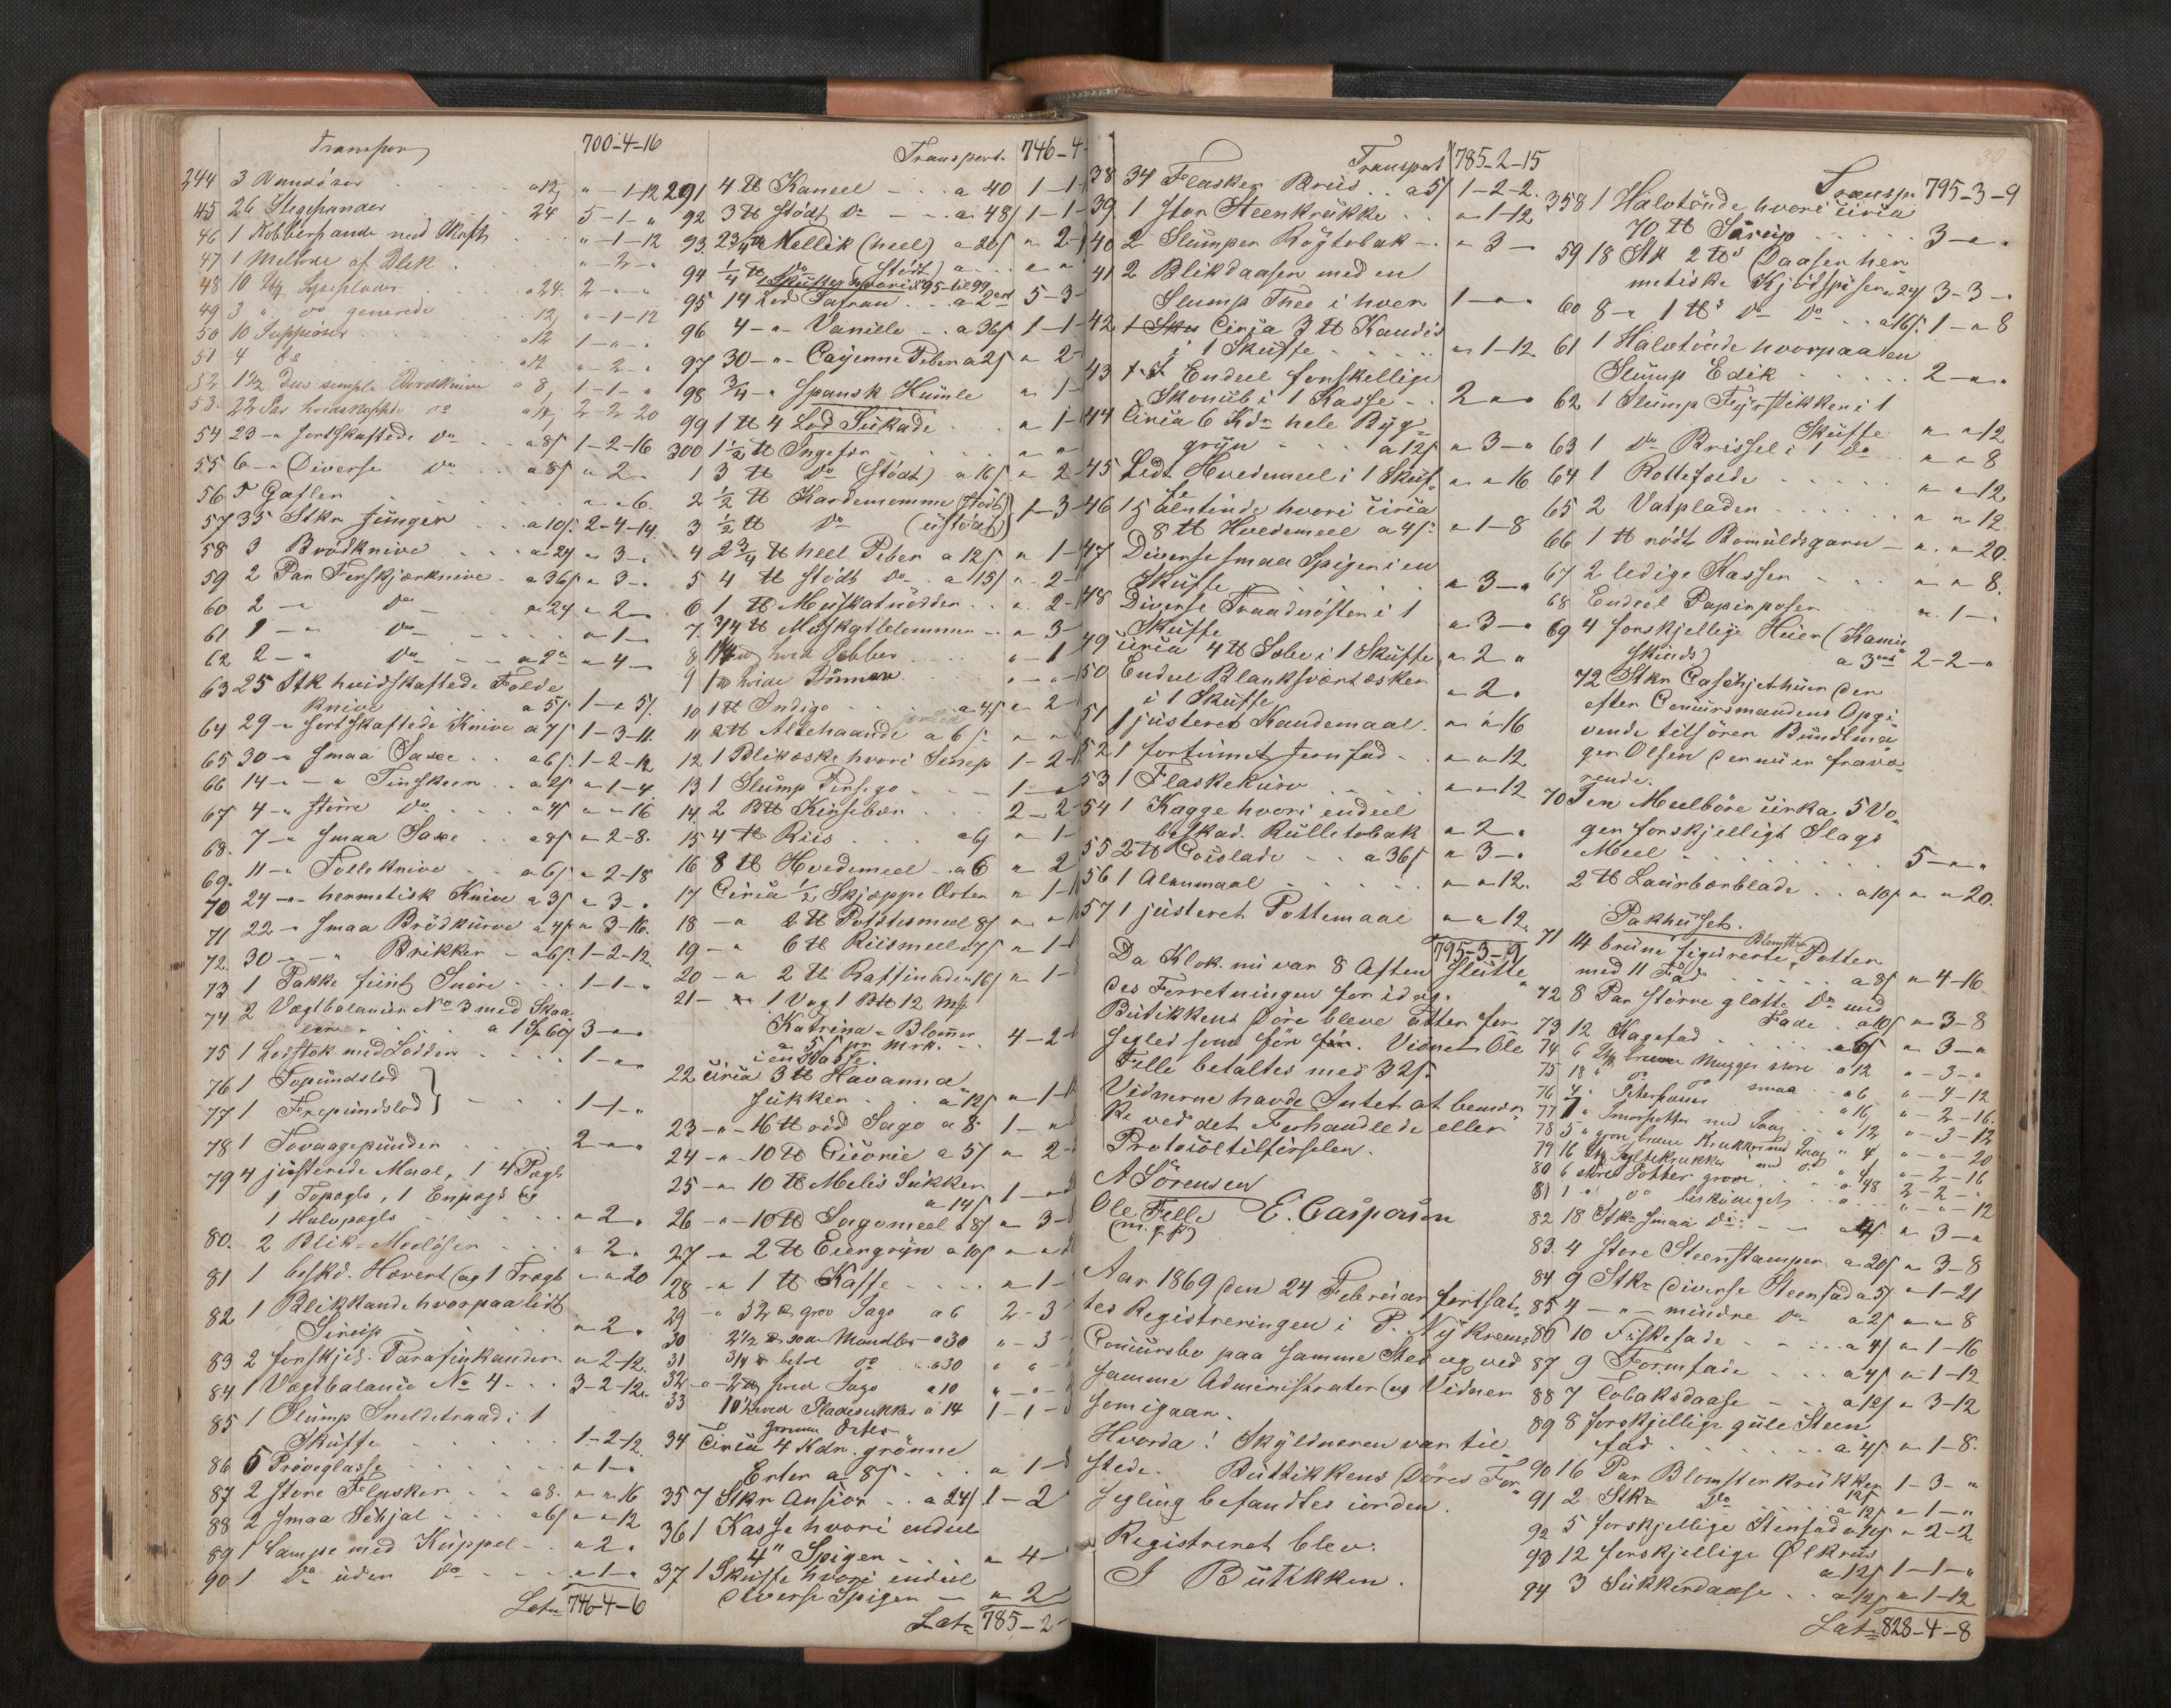 Transport 700-4-16
244 3 Vandöser a 12 " - 1-12
45 26 Stegepander 24 5-1- "
46 1 Kobberpande med Skaft " -1-12
47 1 af Blik " -2- "
48 10 a 24 2- " - "
49 3 " do 12 " -1-12
50 10 a 12 1- " - "
51 4 do a 12 " -2- "
52 1½ Dus simple Bordknive a 8 1-1- "
53 22 Par hvidskaftede do 2-2-20
54 23 - " sortskaftede do a 8 1-2-16
55 6 - " Diverse do a 8 " 2 - "
56 5 Gafler " - " 6.
57 35 Stkr Junger a 10 2-4-14
58 3 Brödknive a 24 " 3 - "
59 2 Par Forskjærknive a 36 " 3 - "
60 2 - " do a 24 " 2 -
61 1 - " do " 1 - "
62 2 - " do " 4 -
63 25 Stk hvidskaftede Folde
knive a 5 1 - " 5
64 29 - " sortskaftede Knive a 7 1-3-11
65 30 - " smaa Saxe a 6 1-2-12
66 14 - " - " Tinskeer a 2 " 1-4
67 4 - " större do a 4 " - " 16
68. 7 - " smaa Saxe a 8 " 2-8.
69. 11 - " Folleknive a 6 " 2-18
70 24 - " - hermetisk Knive a 3 " 3 - "
71 22 - " smaa Brödkurve a 4 " 3-16.
72. 30 - " - " Brikker a 6 1-2-12.
73 1 Pakke fiint Snöre 1-1- "
74 2 Vægtbalancer No 3 med Skaa
ler a 1 Sp 60 3 - " - "
75 1 Lodstok med Lodder 1 - " -
76 1 Topundslod
77 1 Firepundslod 1-1- "
78 1 Tovaagspunder 2 - " - "
79 4 justerede Maal, 1 4 Pægls
1 Topægls, 1 Enpægls og
1 Halvpægls " 2 - "
80. 2 Blik-Meelöser " 2 - "
81 1 beskd. Hævert og 1 Tragt " - " 20
82 1 Blikkande hvorpaa lidt
Sirup " 2 - "
83 2 forskjel. Parafinkander " 2-12.
84 1 Vægtbalance No 4 3-2-12.
85 1 Slump Sneldetraad i 1
Skuffe 1-2-12.
86 5 Pröveglasse " 1 - "
87 2 store Flasker a 8. " - " 16
88 2 smaa a 6 " - " 12
89 1 Lampe med Kuppel " 2 - "
90 1 do uden do " 1 - "
Lat= 746-4-6
Transport 746-4-
291 4 ℔ Kaneel a 40 1-1-
92. 3 ℔ stödt do a 48 1-1-
93. 2 3/4 ℔ Nellik (heel) a 26 " 2-
94 1/4 ℔ do (stödt) a " "
i Skuffer hvori 95 til 99
95 14 Lod Safran a 2 ort 5-3-
96 4 - " - Vanille a 36 1-1-
97 30 - " - Cayenne Peber a 2 " 2-
98 3/4 - " Spansk Humle " 1-
99 1 ℔ 4 Lod Sukade " 1-
300 1½ ℔ Ingefær " "
1 3 ℔ do (stödt) a 16 " 2-
2 ½ ℔ Kardemomme (stödt)
3 ½ ℔ do (ustödt) 1-3-
4 2 3/4 ℔ heel Peber a 12 " 1-
5 4 ℔ stödt do a 15 " 2-
6 1 ℔ Muskatnödder " 2-
7 3/4 ℔ Muskatblomme " 3-
8 hvid Pebber " - 1
9 hvide Bönner " - "
10 1 ℔ Indigo a 4 " 2-
11 2 ℔ Allehaande a 6 " "
12 1 Blikæske hvori Senep 1-2-
13 1 Slump 1- "
14. 2 B℔ Kirsebær 2-2-
15 4 ℔ Riis a 9 " 1-
16 8 ℔ Hvedemeel a 6 " 2
17 Circa ½ Skjæppe Erter " 1-
18 - " 2 ℔ Potetsmeel 8 " "
19 - " 6 ℔ Riismeel a 7 " 1-
20 - " 2 ℔ Raffinade a 16 " 1-
21 - " 1 Vog 1 B℔ 12 Mk
Katrina-Blommer
a 5 pr mrk. 4-2-
i en Kasse.
22 circa 3 ℔ Havanna
Sukker a 12 " 1-
23 - " - 16 ℔ röd Sago a 8 1- "
24 - " - 10 ℔ Cicorie a 5 " 2-
25 - " 10 ℔ Melis Sukker
a 14 1- "
26 - " - 10 ℔ Sagomeel a 8 " 3-
27 - " 2 ℔ Eiergryn a 10 " - "
28 - " 1 ℔ Kaffe " 1-
29 - " 32 ℔ grov Sago a 6 2-3
30 2½ ℔ söde Mandler a 30 " - 3
31 3/4 ℔ bitre do a 30 " - "
32 - " - 2 ℔ hvid Sago a 10 " - " -
33 Pladesukker a 14 1-1-
34 Circa 4 Kdr. grönne
Erter a 8 " 1-
35 7 Stkr Ansjos a 24 1-2
36 1 Kasse hvori endeel
4" Spiger " 4-
37 1 Skuffe hvori endeel
diverse Spiger " 2
Lat= 785-2-
Transport 785-2-15
38 34 Flasker Bruus a 5 1-2-2.
39 1 stor Steenkrukke " 1-12
40 2 Slumper Rögtobak " 3 -
41 2 Blikdaaser med en
Slump Thee i hver 1 - " - "
42. Circa 3 ℔ Kandis
i 1 Skuffe " 1-12
43 Endeel forskellige
Skonub i 1 Kasse 2 - " "
44 Circa 6 Kdr hele Byg=
gryn a 12 " 3 - "
45 Lidt Hvedemeel i 1 Skuf=
fe " " 16
46 15 hvori circa
8 ℔ Hvedemeel a 4 " 1-8
47 Diverse smaa Spiger i en
Skuffe " 3 - "
48 Diverse Traadnöster i 1
Skuffe " 3 - "
49 circa 4 ℔ Sæbe i 1 Skuffe " 2 "
50 Endeel Blanksværtæsker
i 1 Skuffe " 2 - "
51 1 justeret Kandemaal " " 16
52 1 fortinnet Jernfad " " 12
53 1 Flaskekurv " " 12
54 1 Kagge hvori endeel
beskad. Rulletobak " 2 - "
55 2 ℔ a 36 " 3 - "
56 1 Alenmaal " " 12.
57 1 justeret Pottemaal " " 12
795-3-9
Da Klok. nu var 8 Aften slutte
des Forretningen for idag.
Butikkens Döre bleve atter for
seglet som för. Vidnet Ole
Felle betaltes med 32
Vidnerne havde Intet at bemær
ke ved det Forhandlede eller
Protocoltilførselen.
A Sörensen
Ole Felle E. Casparsen
(m. p. p.)
Aar 1869 den 24 Februar fortsat=
tes Registreringen i P. Nykreims
Concursbo paa samme Sted og ved
samme Administrator og Vidner
som igaar.
Hvorda! Skyldneren var til=
stede. Buttikkens Döres For=
segling befandtes iorden.
Registreret blev:
I Butikken.
Transp. 795-3-9
358 1 Halvtönde hvori circa
70 ℔ Sirup 3 - " -
59 18 Stk 2 ℔s Daaser her
metiske Kjödspiser a 24 3-3- "
60 8 - " 1 ℔s do do a 16 1 - " 8
61 1 Halvtönde hvorpaa en
Slump Edik 2 - " -
62 1 Slump Fyrstikker i 1
Skuffe " " 12
63 1 do Brissel i 1 do " " 8
64 1 Rottefælde " " 12
65 2 Vatplader " " 12
66 1 ℔ rödt Bomuldsgarn " " 20.
67 2 ledige Kasser " " 8.
68 Endeel Papirposer " 1 -
69 4 forskjellige Huer (Kanin
skinds) a 3 ort 2-2- "
72 Stkr Caschjethuer der
efter Concursmandens Opgi
vende tilhörer Bundtma
ger Olsen der nu er fravæ
rende.
70 Ten Meelböre cirka 5 Vo
ger forskjelligt Slags
Meel 5 - " - "
2 ℔ Laurbærblade a 10 " " 20.
Pakhuset.
71 14 brune figurerte Blomster Potter
med 11 Fad a 8 " 4-16
72 8 Par större glatte do med
Fade a 10 " 3-8
73 12 Kagefad a 6 " 3 - "
74 6 Stk brune Mugger store a 12 " - 3 - "
75 18 " do do smaa a 6 " - 4-12
76 4 " a 16 " - 2-16.
77 7 " Smørpotter med Laag a 12 " - 3-12
78 5 " grove brune Krukker med Laag " 4 " - " - 20
79 16 Stk Syltekrukker med do " 4 " - 2-16
80 6 större Potter grove a 48 2-2- "
81 1 " do beskadiget " - " - 12
82 18 Stkr smaa do a 4 " 3 - "
83. 4 store Steenstamper a 20 " 3-8
84 9 Stkr diverse Steenfad a 5 " 1-21
85 4 - " - mindre do a 2 " " 8
86 10 Fiskefade a 4 " 1-16
87 9 Formfade a 4 " 1-12
88 7 Tobaksdaase a 12 " 3-12
89 8 forskjellige gule Steen
fad a 4 " 1-8.
90 16 Par Blomsterkrukker 1-3- "
91 2 Stkr do a 12 " 1 - "
92 5 forskjellige Stenfad a 10 " 2-2
93 12 forskjellige Ölkrus
a 12 1-1- "
94 3 Sukkerdaase a 12 " 1-12
Lat= 828-4-8